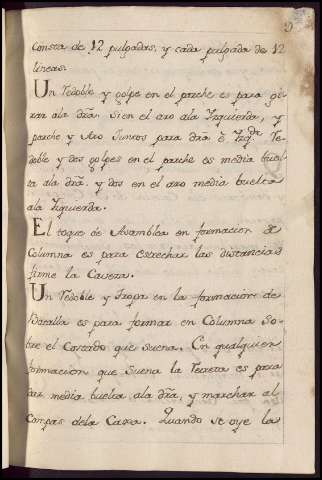 Consta de 12 pulgadas, y cada pulgada de 12
lineas.
Un Redoble y golpe en el parche es para gi
rar ala dra. Si en el aro ala Izquierda, y
parche y Aro Juntos para dra ô Izqda Re
doble y dos golpes en el parche es media buel
ta ala dra y dos en el aro media buelta
ala Izquierda.
El toque de Asamblea en formacion de
Columna es para estrechar las distancias
firme la Caveza.
Un Redoble y Tropa en la formacion de
Batalla es para formar en Columna So
bre el Costado que suena. En qualquier
formacion que Suena la Retreta es para
dar media buelta ala dra, y marchar al
Compas dela Caxa. Quando se oye la